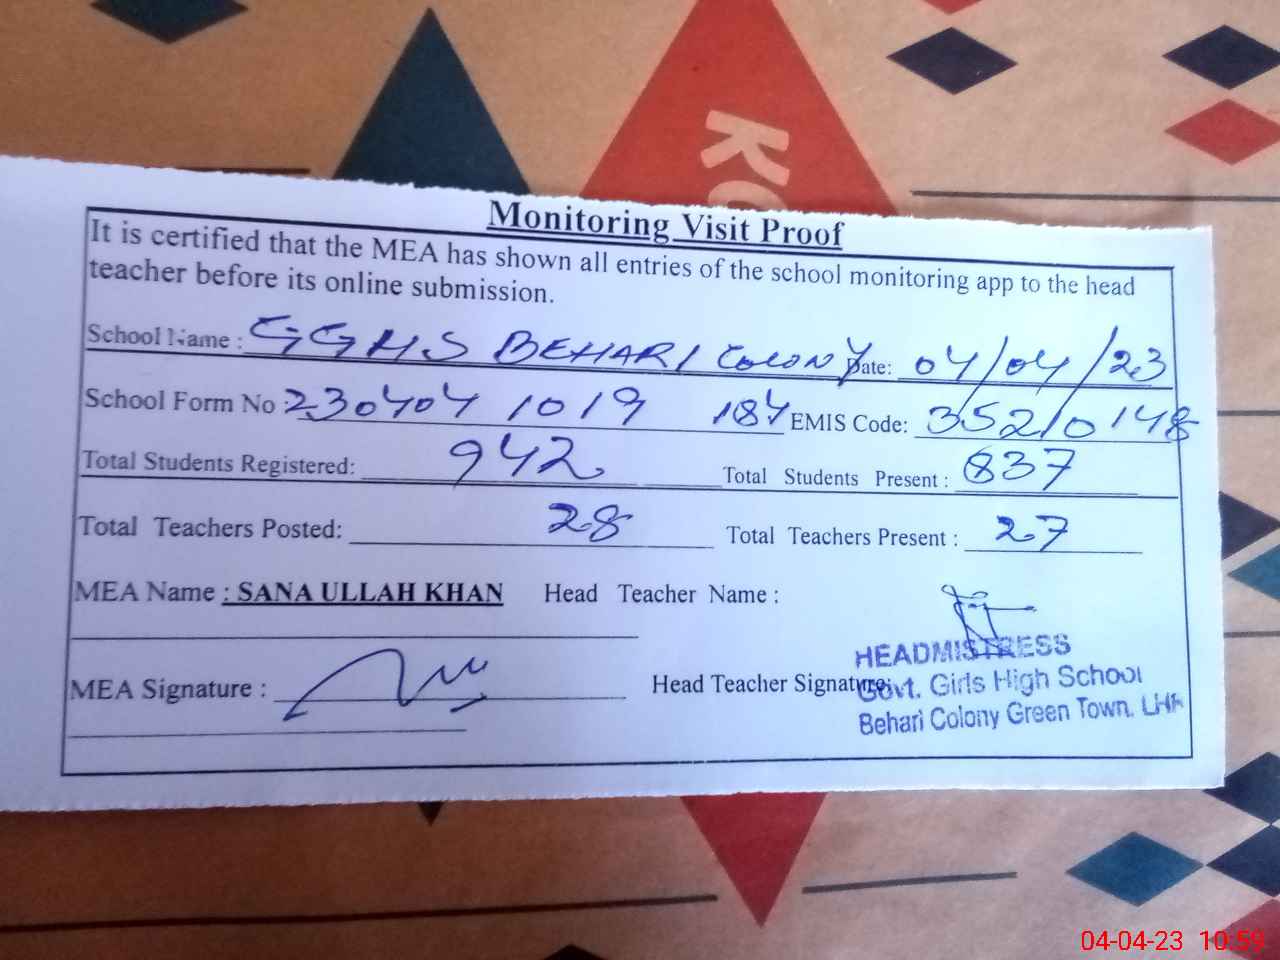 KO
Monitoring Visit Proof
It is certified that the MEA has shown all entries of the school monitoring app to the head
teacher before its online submission.
School Name : GGHS BEHARI COLONY Date: 04/04/23
School Form No : 230404 1019 184 EMIS Code: 35210148
Total Students Registered: 942 Total Students Present : 837
Total Teachers Posted: 28 Total Teachers Present : 27
MEA Name : SANA ULLAH KHAN Head Teacher Name :
HEADMISTRESS
MEA Signature : Head Teacher Signature:
Govt. Girls High School
Behari Colony Green Town. LHR
04-04-23 10:59